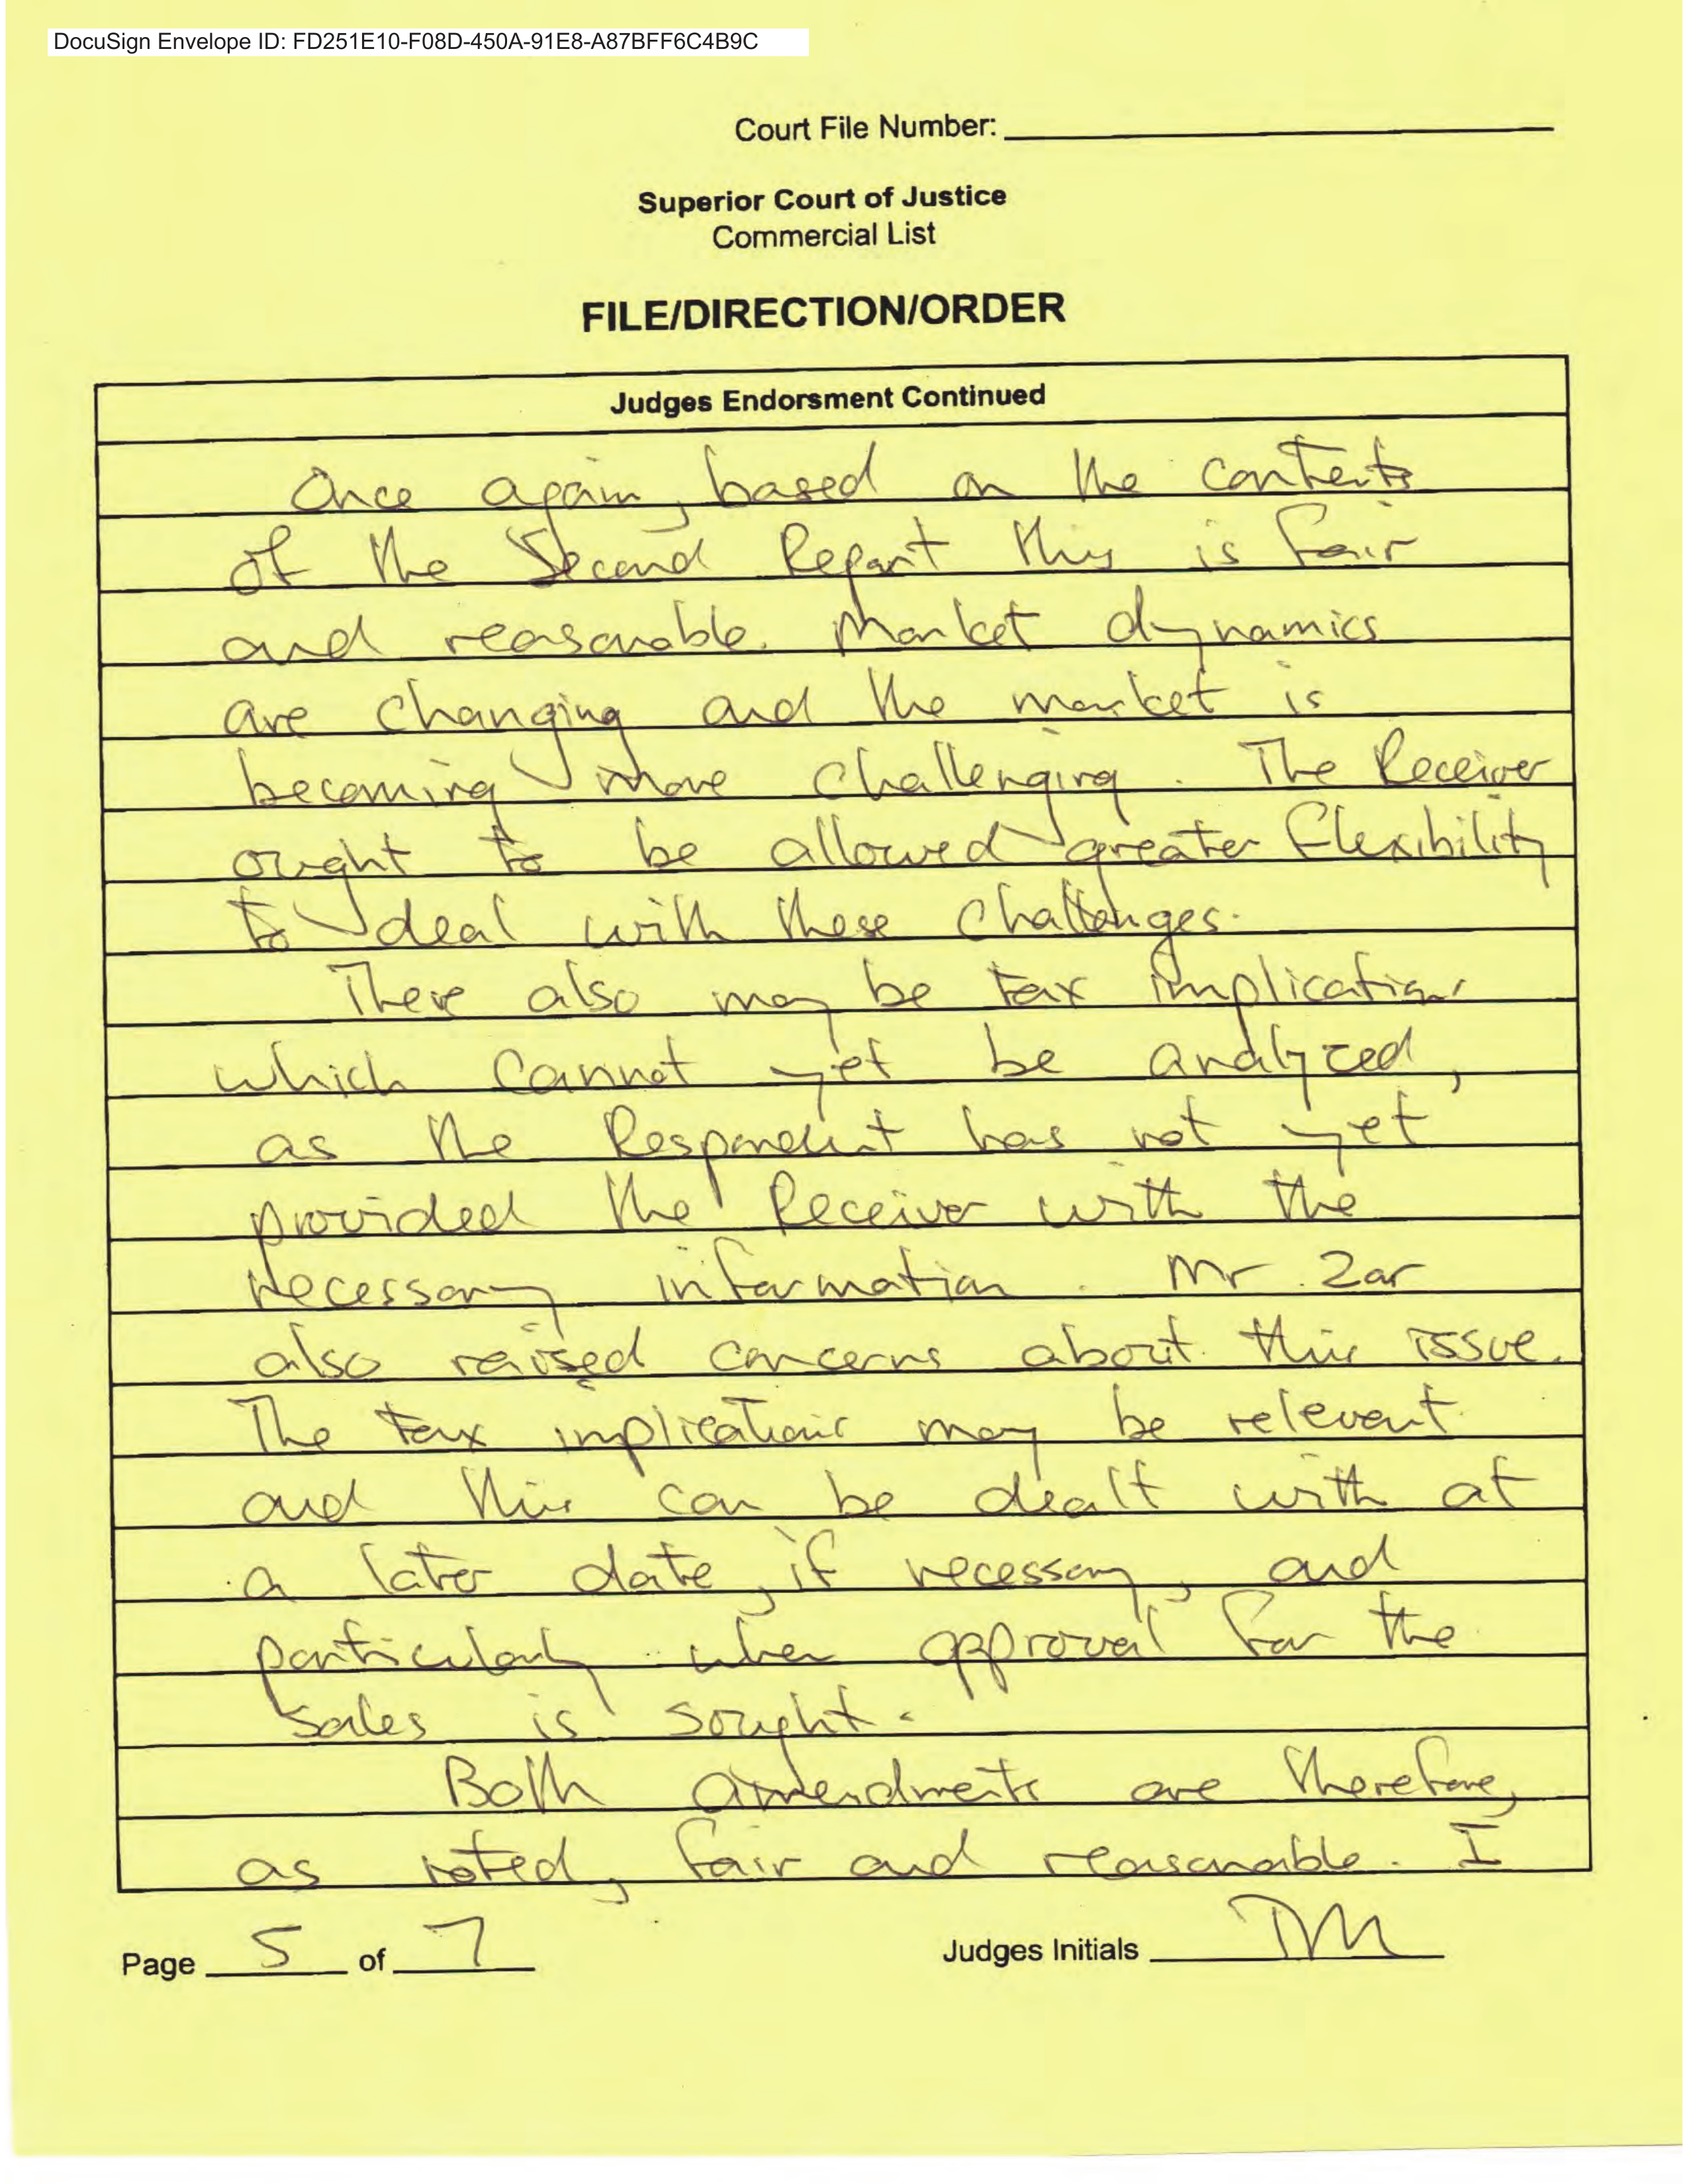 DocuSign Envelope ID: FD251E10-F08D-450A-91E8-A87BFF6C4B9C
Court File Number:
Superior Court of Justice
Commercial List
FILE/DIRECTION/ORDER
Judges Endorsment Continued
Once again, based on the contents
of the Second Report this is fair
and reasonable. Market dynamics
are changing and the market is
becoming more challenging. The Receiver
ought to be allowed greater flexibility
to deal with these challenges.
There also may be tax implications
which cannot yet be analyzed,
as the Respondent has not yet
provided the Receiver with the
necessary information. Mr. Zar
also raised concerns about this issue.
The tax implications may be relevent
and this can be dealt with at
a later date, if necessary, and
particularly when approval for the
sales is sought.
Both amendments are therefore,
as noted, fair and reasonable. I
Page 5 of 7
Judges Initials DM